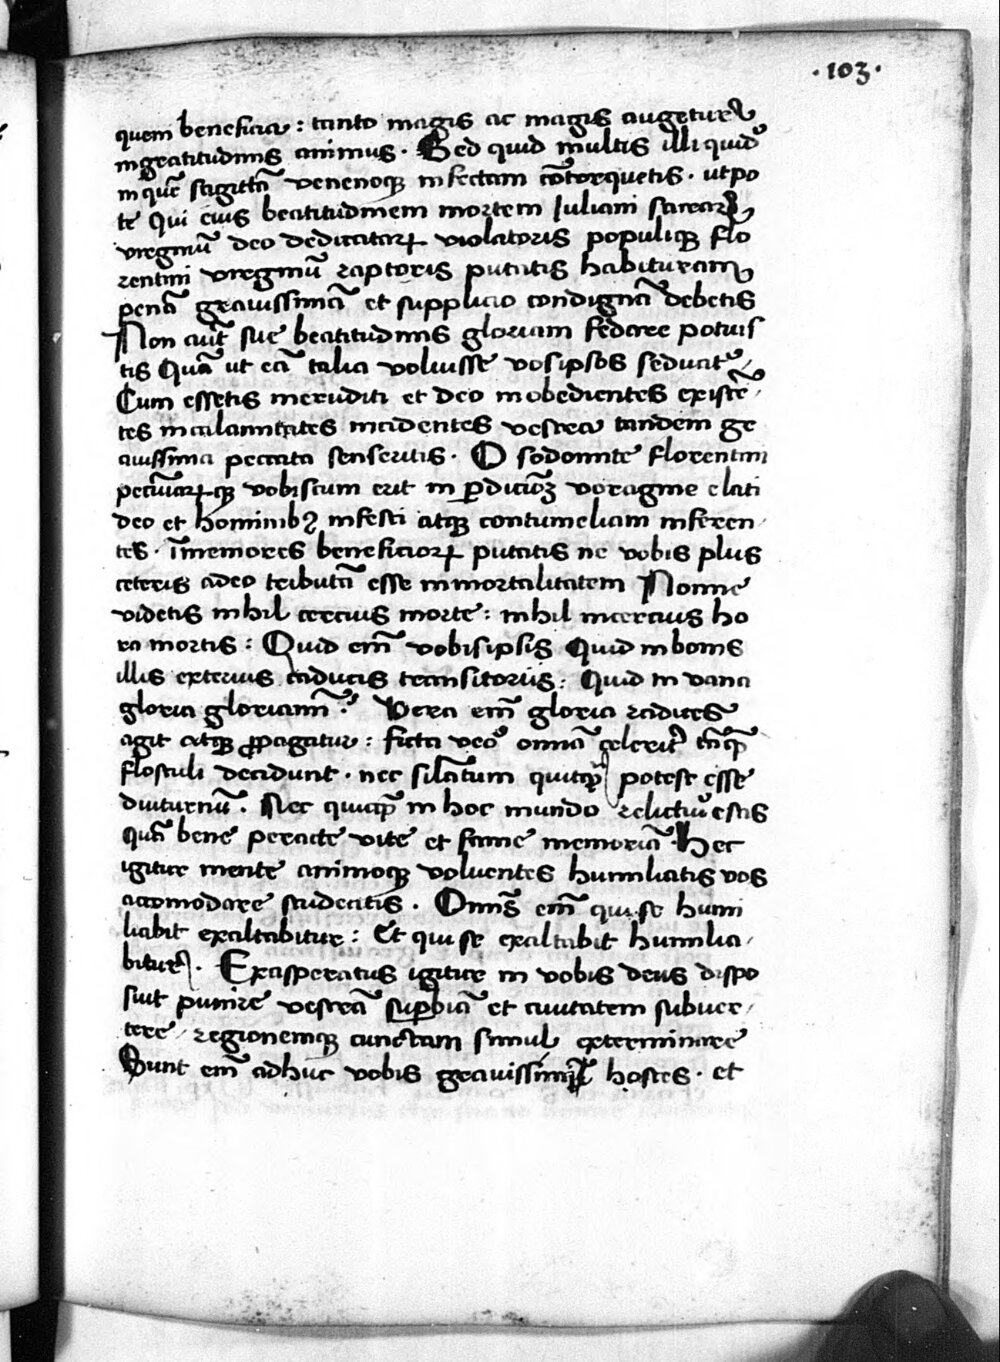 ·103·
quem beneficia: tanto magis ac magis augetur
ingratitudinis animus. Sed quid multis illi quidē
in quē sagittā venenoq̨ infectam cōtorquetis. ut po
te qui eius beatitudinem mortem Iuliani sacrarꝝ
virginū deo dedicatarꝝ violatoris populiq̨ flo
rentini virginū raptoris putatis habituram
penā gravissimā et supplicio condignā debetis
Non aūt sue beatitudinis gloriam fedare potuis
tis Quā ut eā talia voluisse vosipsos seducat
Cum essetis ineruditi et deo inobedientes existē-
tes in calamitates incidentes vestra tandem gra
auissima peccata senseritis. O sodomite florentini
pecuniarꝝq̨ vobiscum erit in ꝑdicionꝫ voragine elati
deo et hominibꝰ infesti atq̨ contumeliam inferen-
tes. īmemores beneficiorꝝ putatis ne vobis plus
ceteris adeo tributā esse immortalitatem Nonne
videtis nihil cercius morte: nihil incercius ho
ra mortis: Quid em̄ vobisipsis Quid in bonis
illis exterius caducis transitoriis: Quid in vana
gloria gloriamī. Vera em̄ gloria radices
agit atq̨ ꝓpagatur: ficta vero omīa celerit tāq̄
flosculi decidunt. nec silatum quicq̄ potest esse
diuturnū. Nec quicq̄ in hoc mundo relictū estis
quā bene peracte vite et fame memoriā. Hec
igitur mente animoq̨ voluentes humiliatis vos
acomodare studeatis. Omīs em̄ qui se humi
liabit exaltabitur: Et qui se exaltabit humilia-
bitur. Exasperatus igitur in vobis deus dispo
suit punire vestrā suꝑbiā et ciuitatem subuer-
tere, regionemq̨ cunctam simul exterminare
Sunt em̄ adhuc vobis gravissimi hostes. et